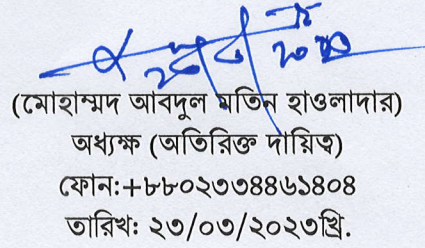 (মোহাম্মদ আবদুল মতিন হাওলাদার)
অধ্যক্ষ (অতিরিক্ত দায়িত্ব)
ফোন:+৮৮০২৩৩৪৪৬১৪০৪
তারিখ: ২৩/০৩/২০২৩খ্রি.